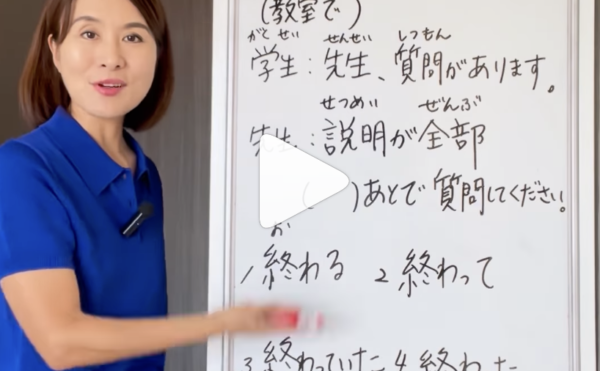 (教室で)
がくせい せんせい しつもん
学生：先生、質問があります。
せつめい ぜんぶ
先生：説明が全部
( )あとで質問してください。
お
1 終わる 2 終わって
3 終わっていた 4 終わった